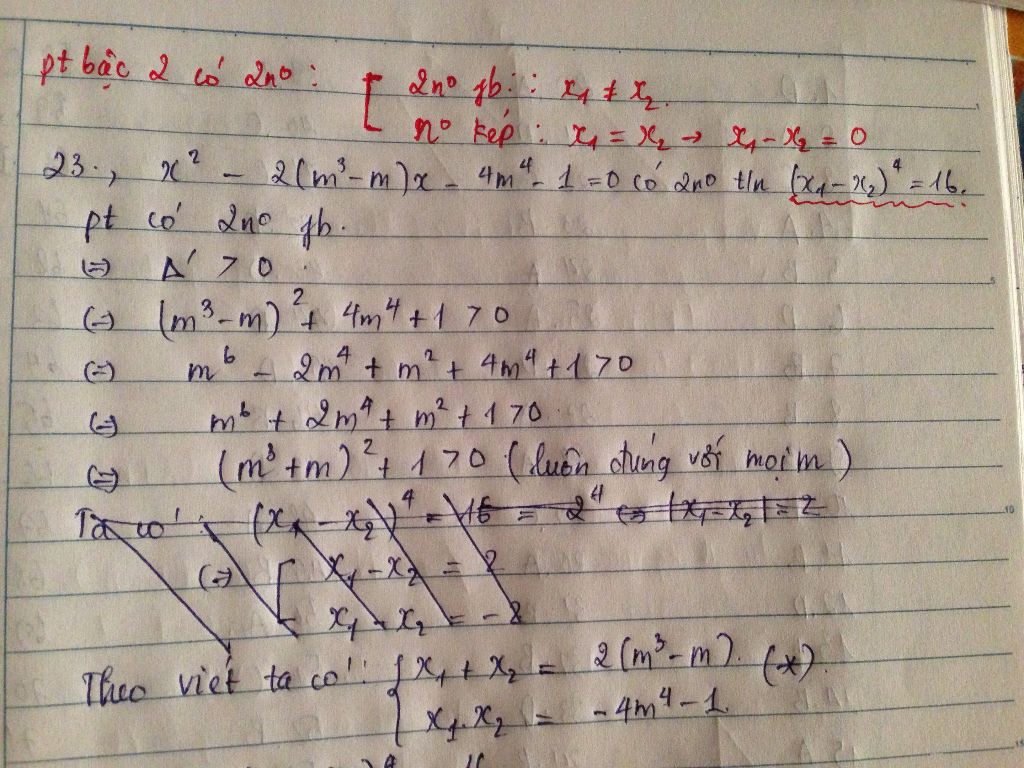 pt bậc 2 có 2nº : [ 2nº fb : x₁ ≠ x₂.
nº kép : x₁ = x₂ → x₁ - x₂ = 0
23., x² - 2(m³-m)x - 4m⁴ - 1 = 0 có 2nº t/n (x₁-x₂)⁴ = 16.
pt có 2nº fb.
(=) Δ' > 0
(=) (m³-m)² + 4m⁴ + 1 > 0
(=) m⁶ - 2m⁴ + m² + 4m⁴ + 1 > 0
(=) m⁶ + 2m⁴ + m² + 1 > 0
(=) (m³+m)² + 1 > 0 (luôn đúng với mọi m)
Ta có : (x₁ - x₂)⁴ = 16 = 2⁴ (=) |x₁-x₂| = 2
(=) [ x₁ - x₂ = 2
x₁ - x₂ = -2
Theo viét ta có : { x₁ + x₂ = 2(m³-m). (*).
x₁.x₂ = -4m⁴ - 1.